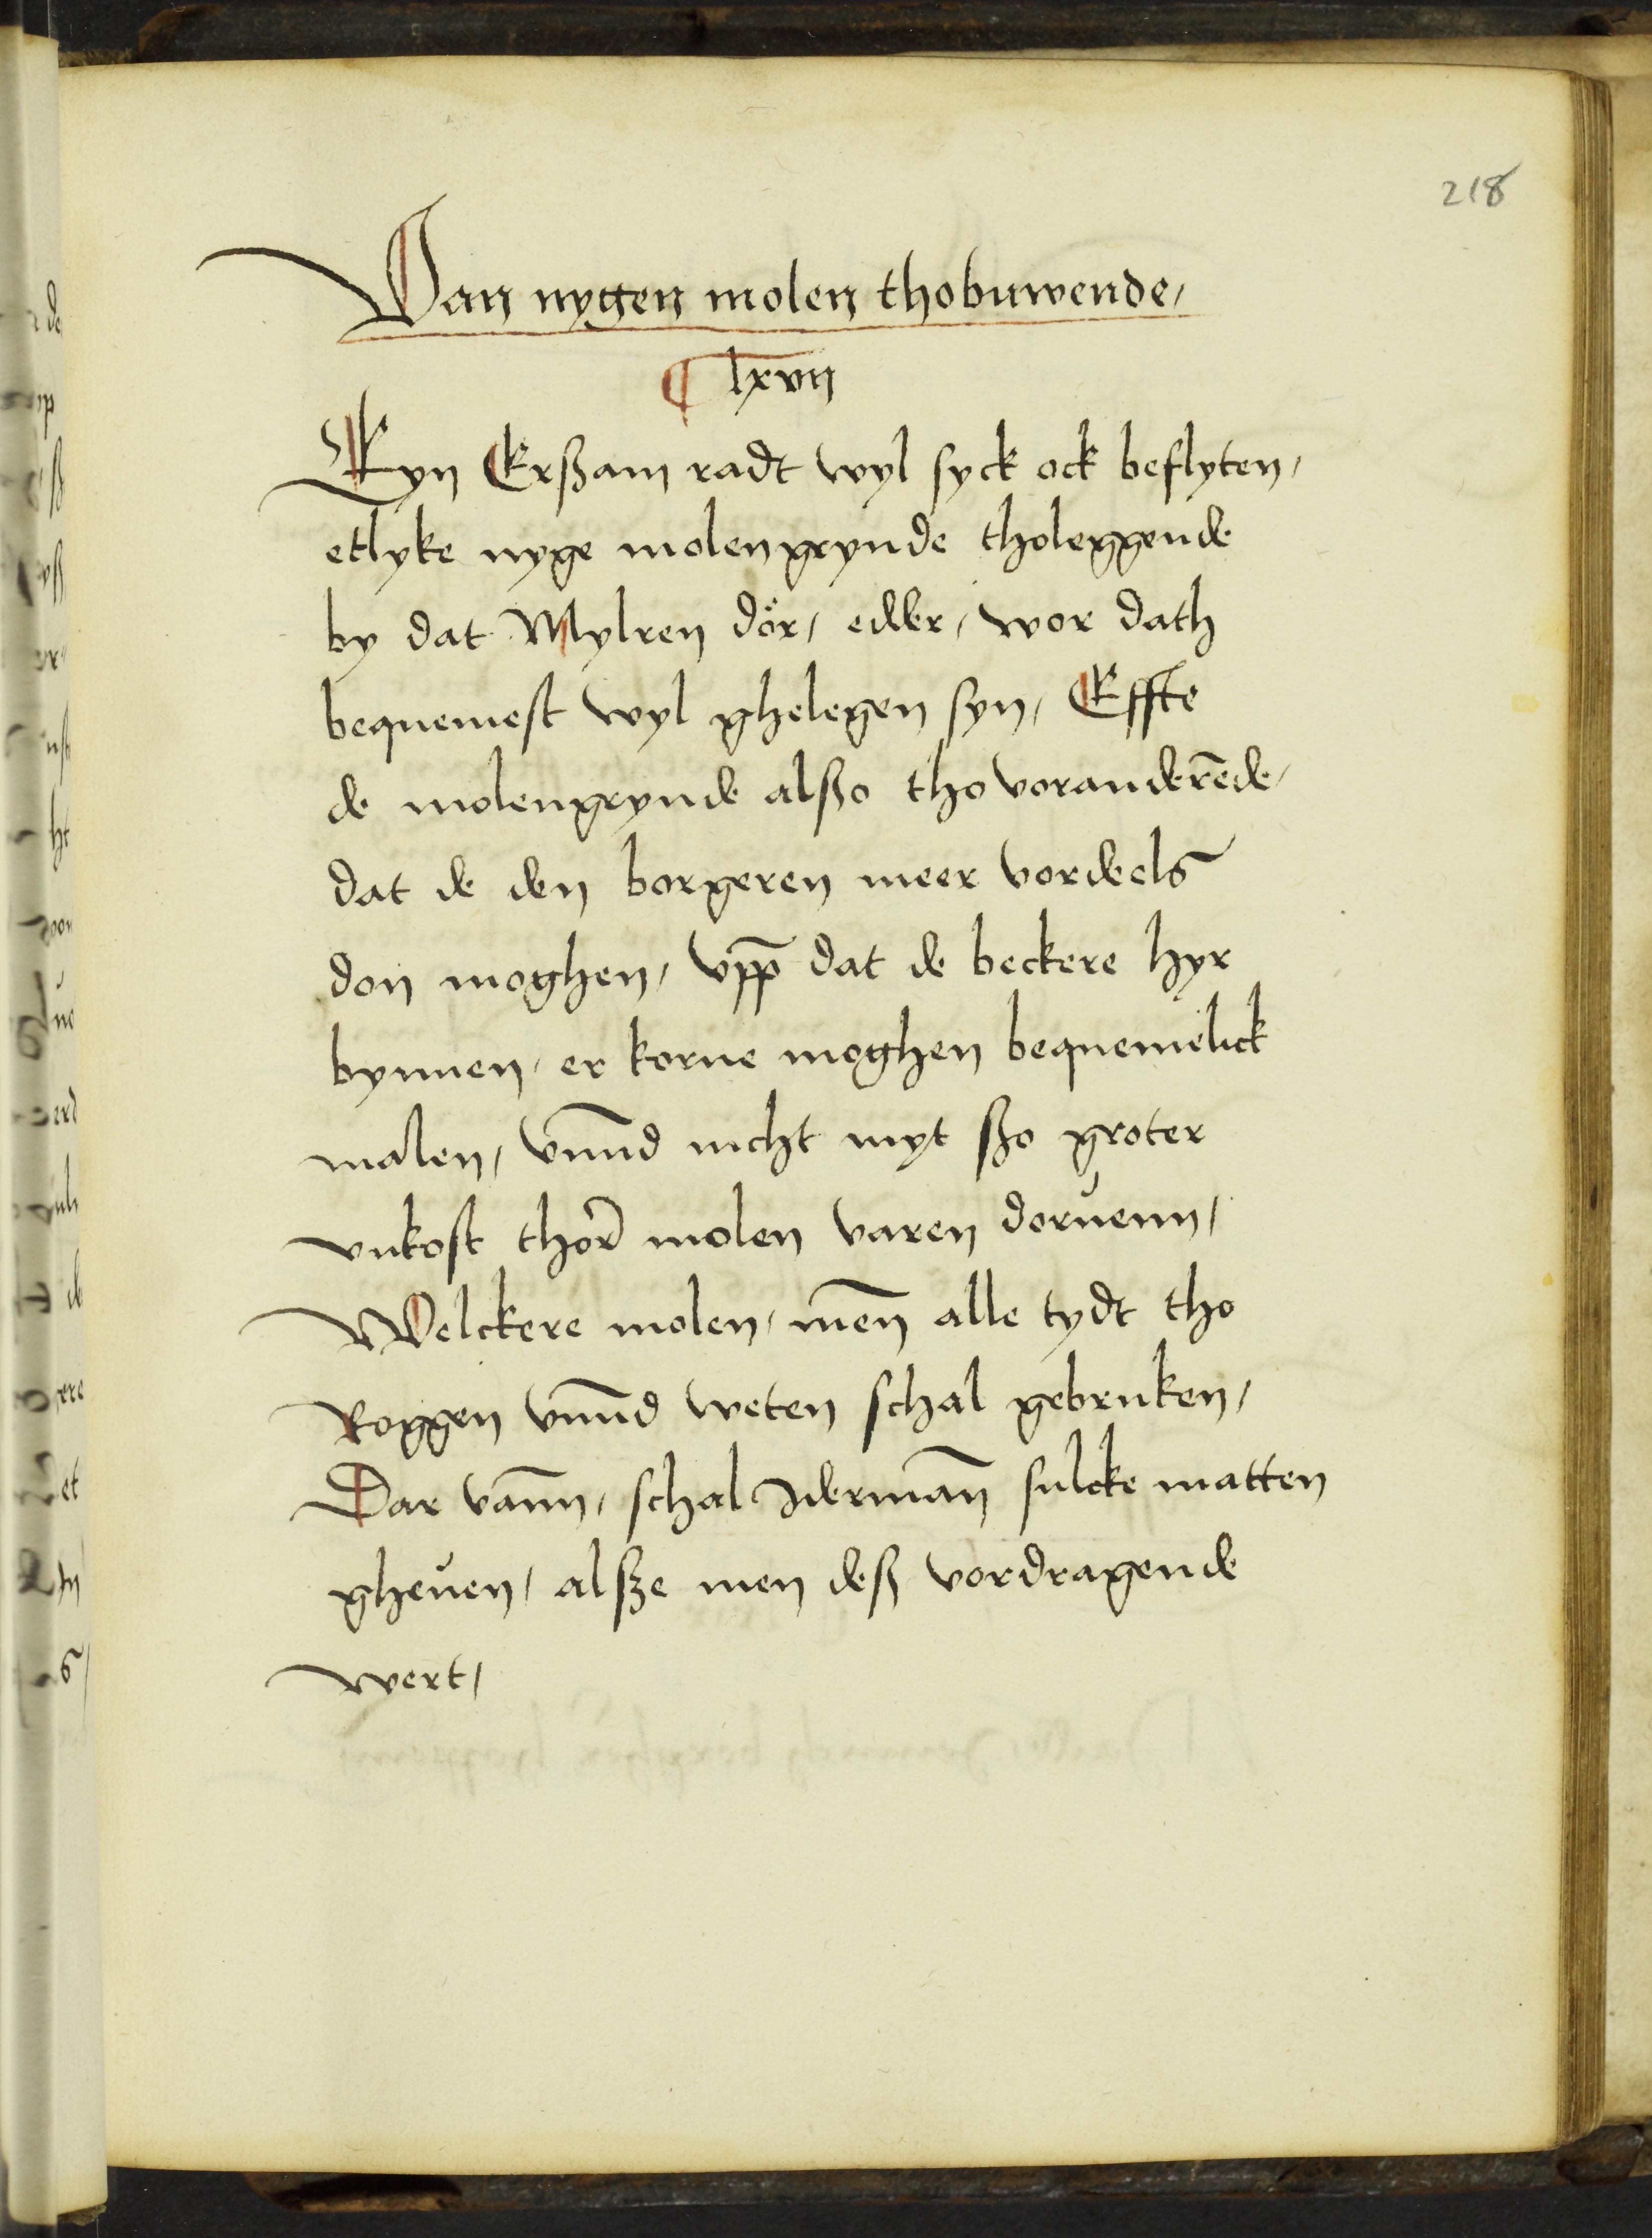 218
Van nygen molen thobuwende /
¶ lxvii
Eyn Erßam radt wyl syck ock beflyten /
etlyke nyge molengrynde tholeggende
by dat Mylren dör / edder / wor dath
bequemest wyl ghelegen syn / Effte
de molengrynde alßo tho voranderēde /
dat de den borgeren meer vordeels
don moghen / vpp dat de beckere hyr
bynnen / er korne moghen bequemelick
malen / vnnd nicht myt ßo groter
vnkost thor molen varen doruenn /
Welckere molen / men alle tydt tho
Roggen vnnd weten schal gebruken /
Dar vann / schal Iderman sulcke matten
gheuen / alsze men deß vordragende
wert /